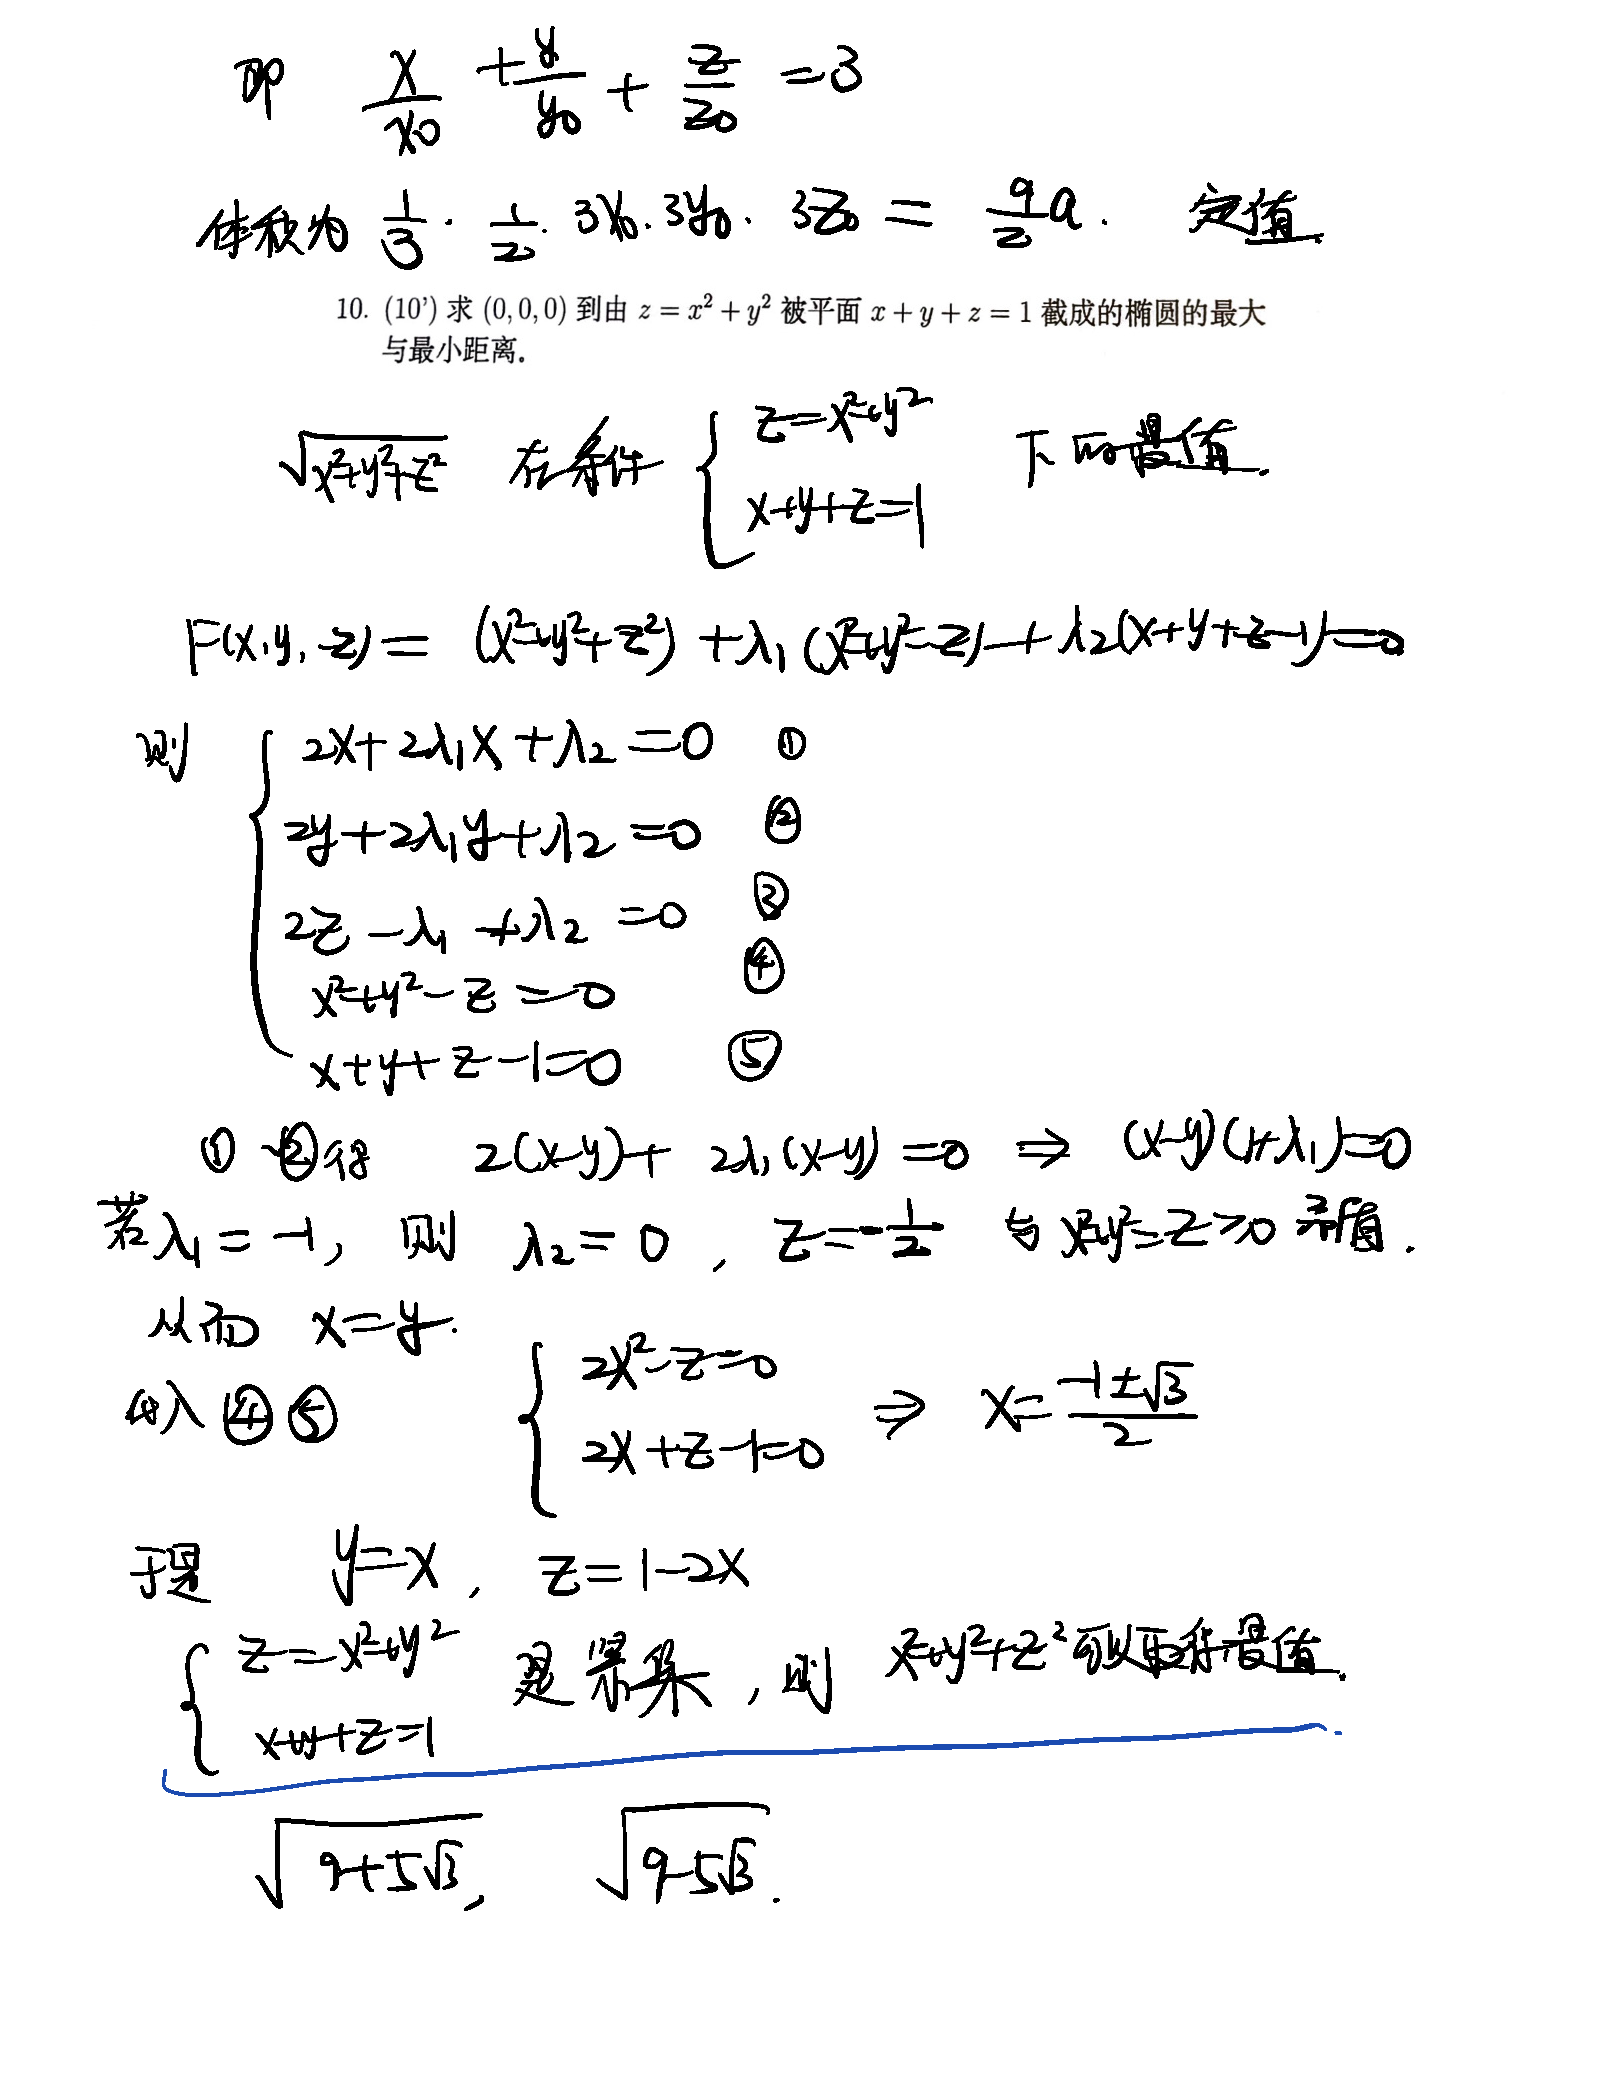 即 x/x0 + y/y0 + z/z0 = 3
体积为 1/3 · 1/2 · 3x0 · 3y0 · 3z0 = 9/2 a. 定值
10. (10’) 求 (0, 0, 0) 到由 z = x² + y² 被平面 x + y + z = 1 截成的椭圆的最大
与最小距离.
√(x²+y²+z²) 在条件 { z=x²+y² x+y+z=1 下的最值.
F(x,y,z) = (x²+y²+z²) + λ1(x²+y²-z) + λ2(x+y+z-1) = 0
则 { 2x+2λ1x+λ2=0 ①
2y+2λ1y+λ2=0 ②
2z-λ1+λ2=0 ③
x²+y²-z=0 ④
x+y+z-1=0 ⑤
①-②得 2(x-y)+2λ1(x-y)=0 ⇒ (x-y)(1+λ1)=0
若λ1=-1, 则 λ2=0, z=-1/2 与 x²+y²=z>0 矛盾.
从而 x=y.
代入④⑤ { 2x²-z=0 2x+z-1=0 ⇒ x=(-1±√3)/2
于是 y=x, z=1-2x
{ z=x²+y² x+y+z=1 是紧集, 则 x²+y²+z²可以取得最值.
√(9+5√3), √(9-5√3).